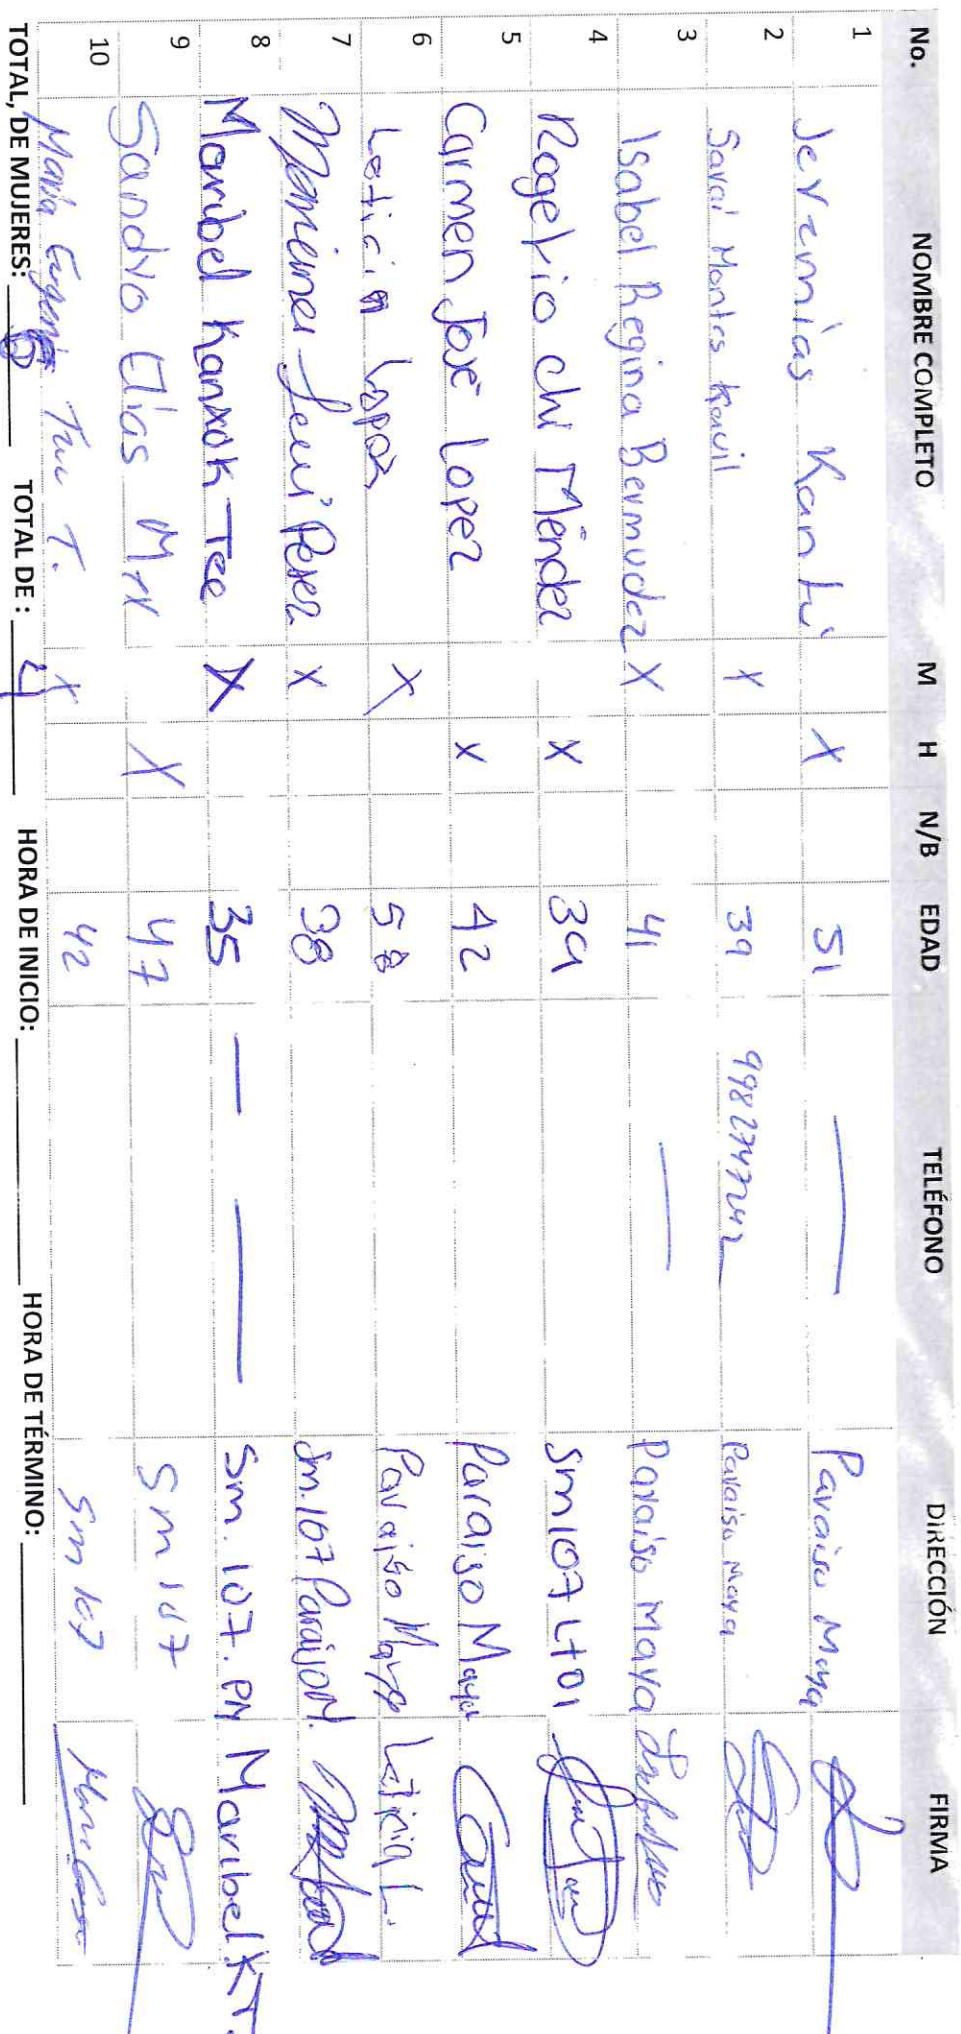 No. NOMBRE COMPLETO M H N/B EDAD TELÉFONO DIRECCIÓN FIRMA
1 Jeremias Kan X 51 — Paraiso Maya
2 Sarai Montes Kauil X 39 9982747242 Paraiso Maya
3 Isabel Regina Bermudez X 41 — Paraiso Maya
4 Rogelio chi Méndez X 39 Sm 107 Lt 01
5 Carmen José Lopez X 42 Paraiso Maya
6 Leticia Lopez X 58 Paraiso Maya Leticia L.
7 X 38 Sm. 107 Paraiso M.
8 Maribel Kanxok Tee X 35 — — Sm. 107. PM Maribel KT.
9 Sandro Elias X 47 Sm 107
10 Maria Eugenia T. X 42 Sm 107
TOTAL, DE MUJERES: 6 TOTAL DE : 4 HORA DE INICIO: HORA DE TÉRMINO: